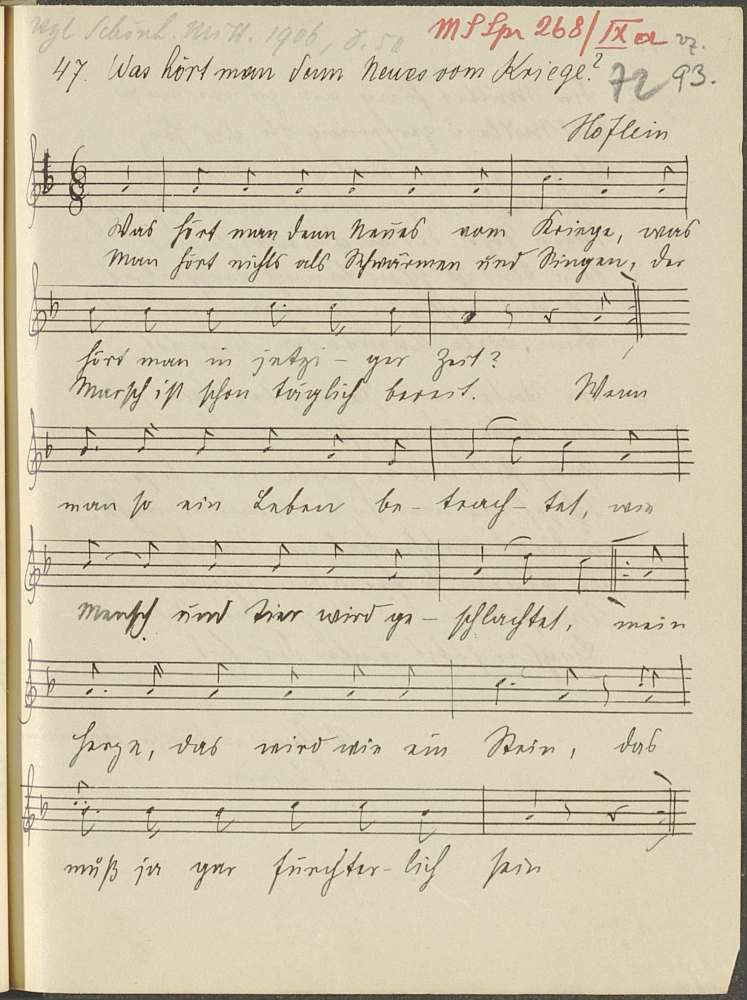 vgl Schönh. Mitt. 1906, S. 50
MS Spr 268/IX a vz.
47. Was hört man denn Neues vom Kriege? 72 93.
Höflein
Was hört man denn Neues vom Kriege, was
Man hört nichts als Schwärmen und Singen, der
hört man in jetzi- ger Zeit?
Marsch ist schon täglich bereit. Wenn
man so ein Leben be- trach- tet, wie
Mensch und Tier wird ge- schlachtet, mein
Herze, das wird wie ein Stein, das
muß ja gar fürchter-lich sein